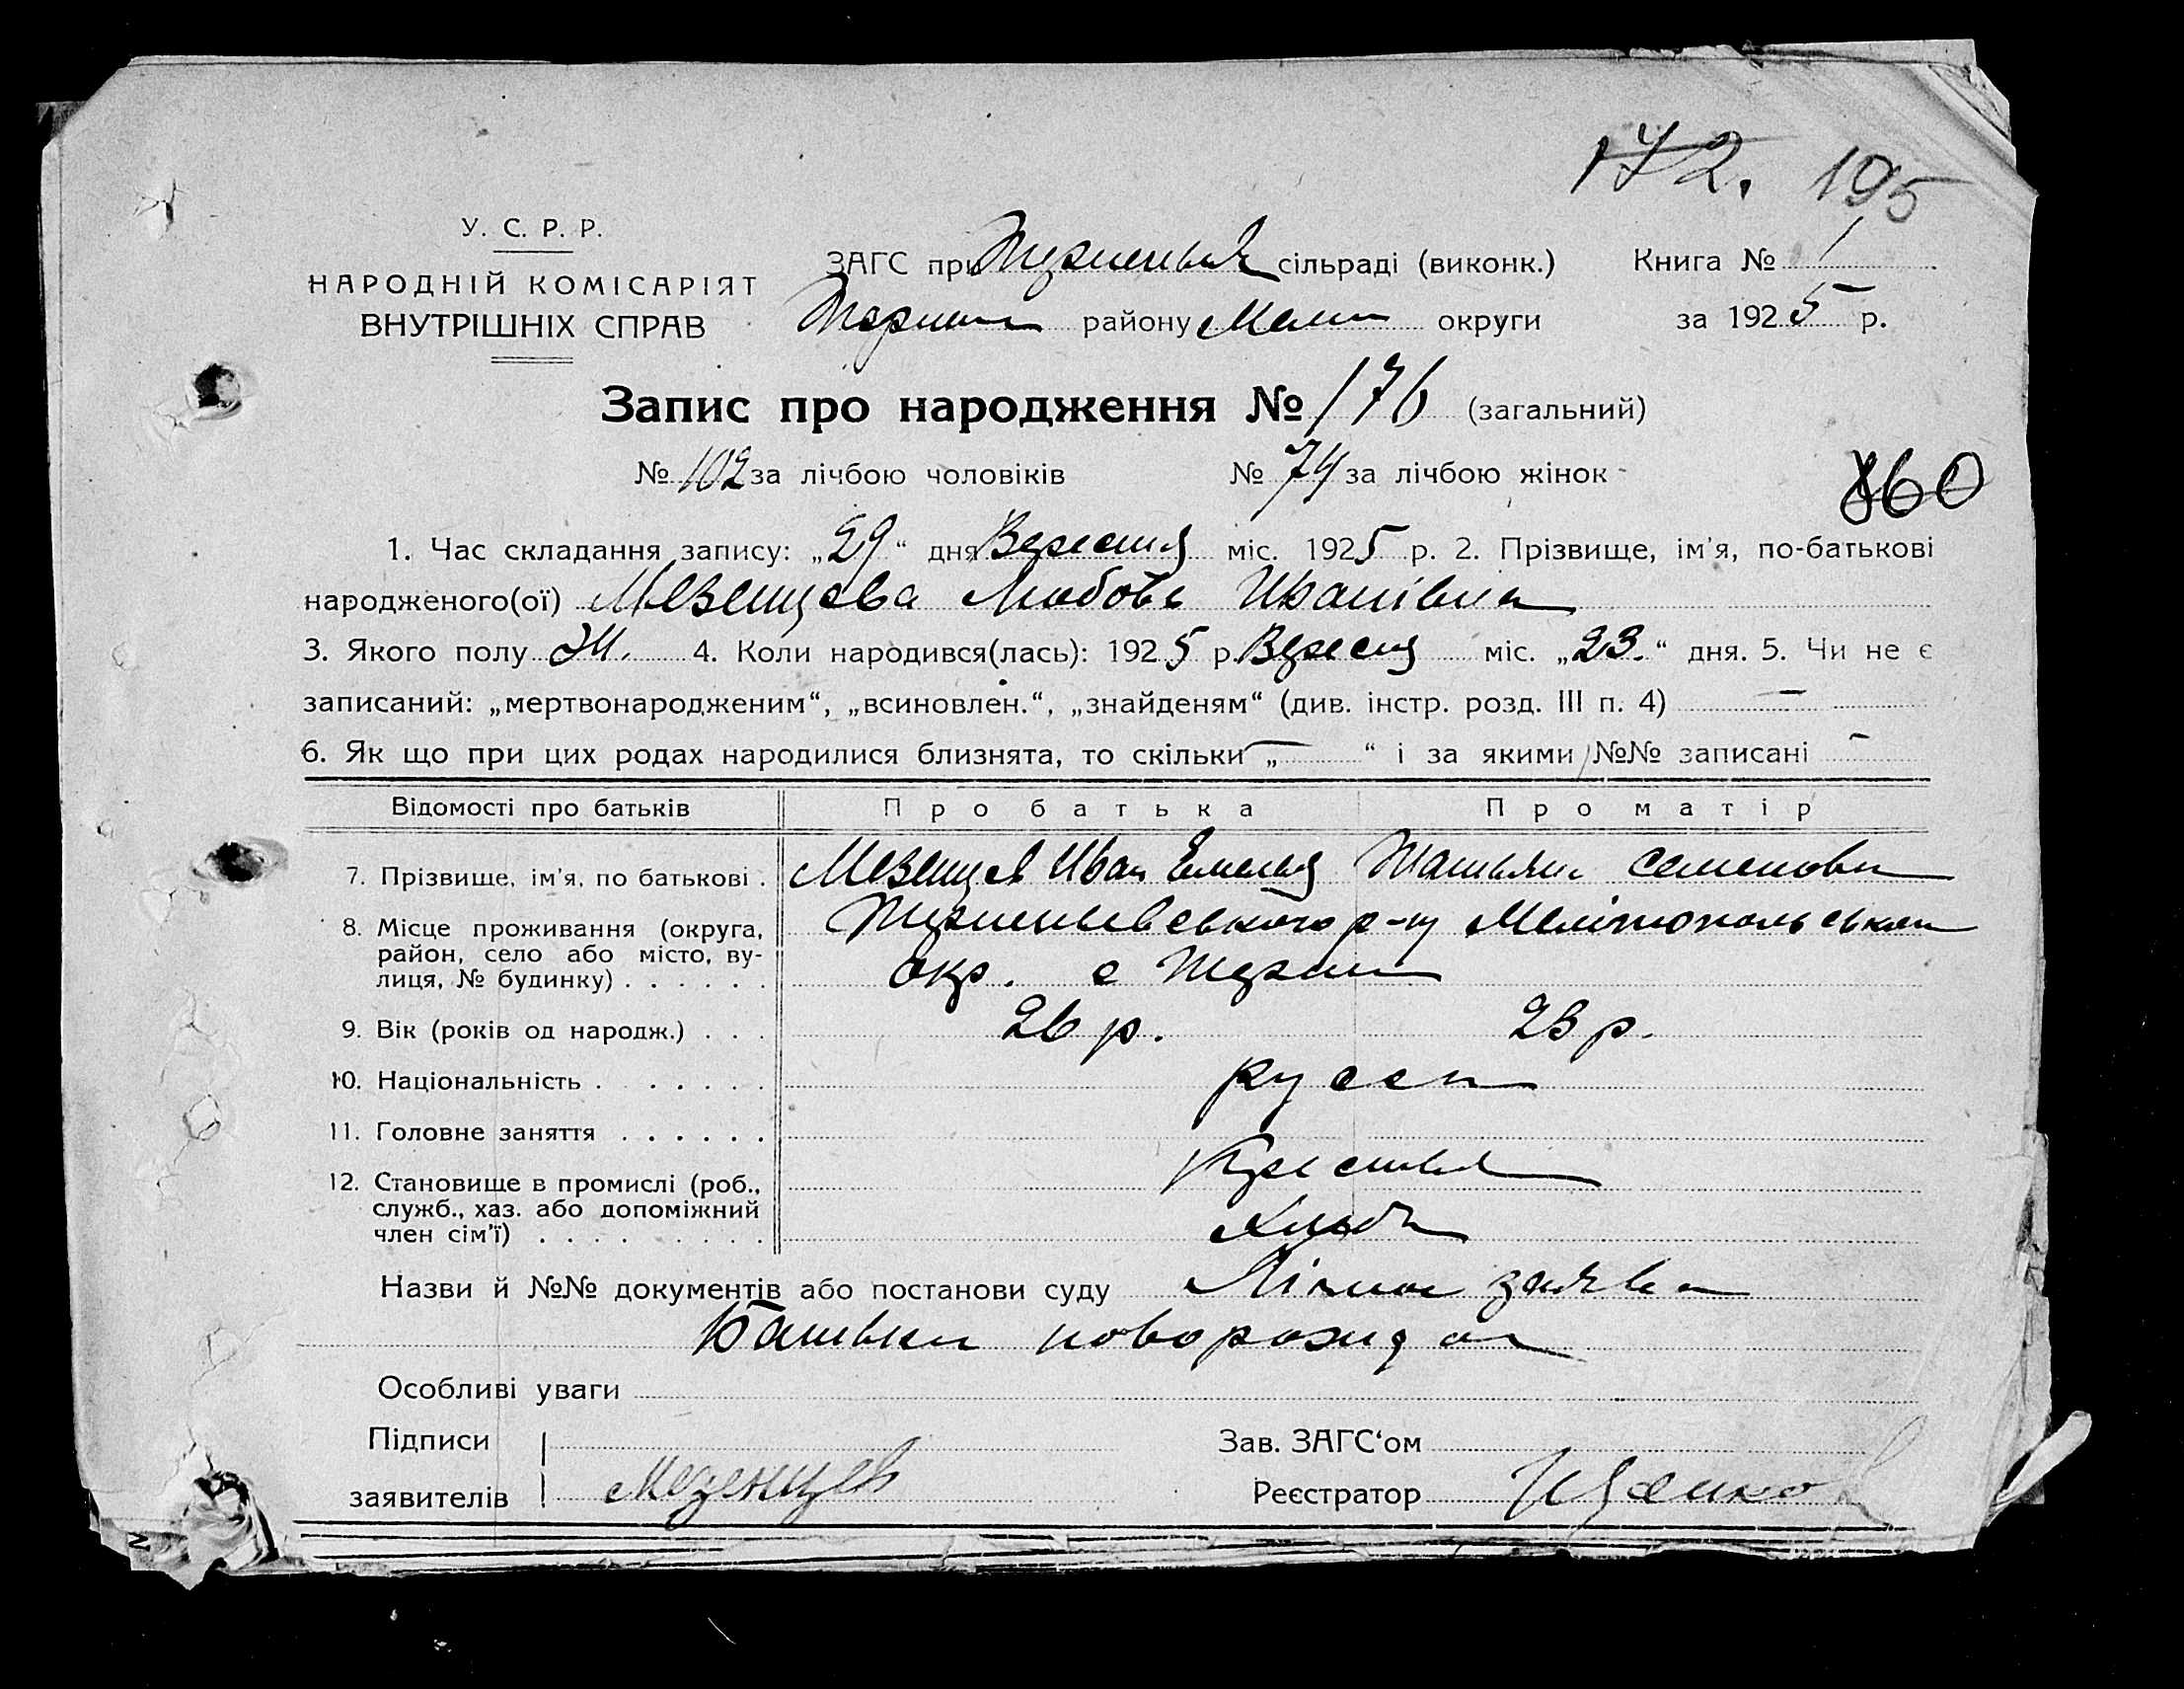 172. 195
У. С. Р. Р.
НАРОДНІЙ КОМІСАРІЯТ
ВНУТРІШНІХ СПРАВ
ЗАГС при сільраді (виконк.) Книга № 1
району Мели округи за 1925 р.
Запис про народження № 176 (загальний)
№ 102 за лічбою чоловіків № 74 за лічбою жінок
860
1. Час складання запису: „29“ дня Вересня міс. 1925 р. 2. Прізвище, ім'я, по-батькові
народженого(ої) Мезенцева Любовь Иванівна
3. Якого полу Ж. 4. Коли народився(лась): 1925 р. Вересня міс. „23.“ дня. 5. Чи не є
записаний: „мертвонародженим“, „всиновлен.“, „знайденям“ (див. інстр. розд. III п. 4) —
6. Як що при цих родах народилися близнята, то скільки „—“ і за якими №№ записані —
Відомості про батьків Про батька Про матір
7. Прізвище, ім'я, по батькові . Мезенцев Иван Емельян Татьяна Семеновн
8. Місце проживання (округа, район, село або місто, вулиця, № будинку) . . . . . . р-ну Мелітопольськои
окр. с
9. Вік (років од народж.) . . . 26 р. 23 р.
10. Національність . . . . . . . русск
11. Головне заняття . . . . . .
12. Становище в промислі (роб., служб., хаз. або допоміжний член сім'ї) . . . . . . . . . Крестья
Хлеб
Назви й №№ документів або постанови суду заява
Батьки новорожд
Особливі уваги
Підписи Зав. ЗАГС'ом
заявителів Мезенцев Реєстратор